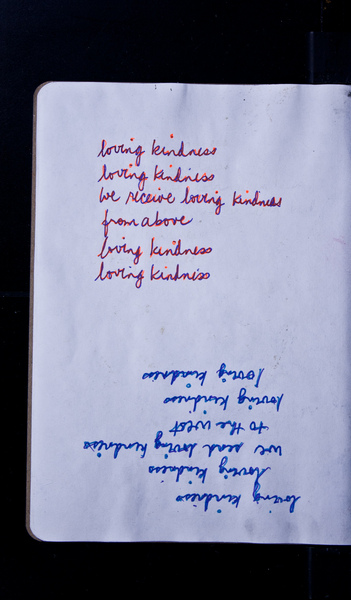 loving kindness
loving kindness
we receive loving kindness
from above
loving kindness
loving kindness
loving kindness
loving kindness
we send loving kindness
to the west
loving kindness
loving kindness